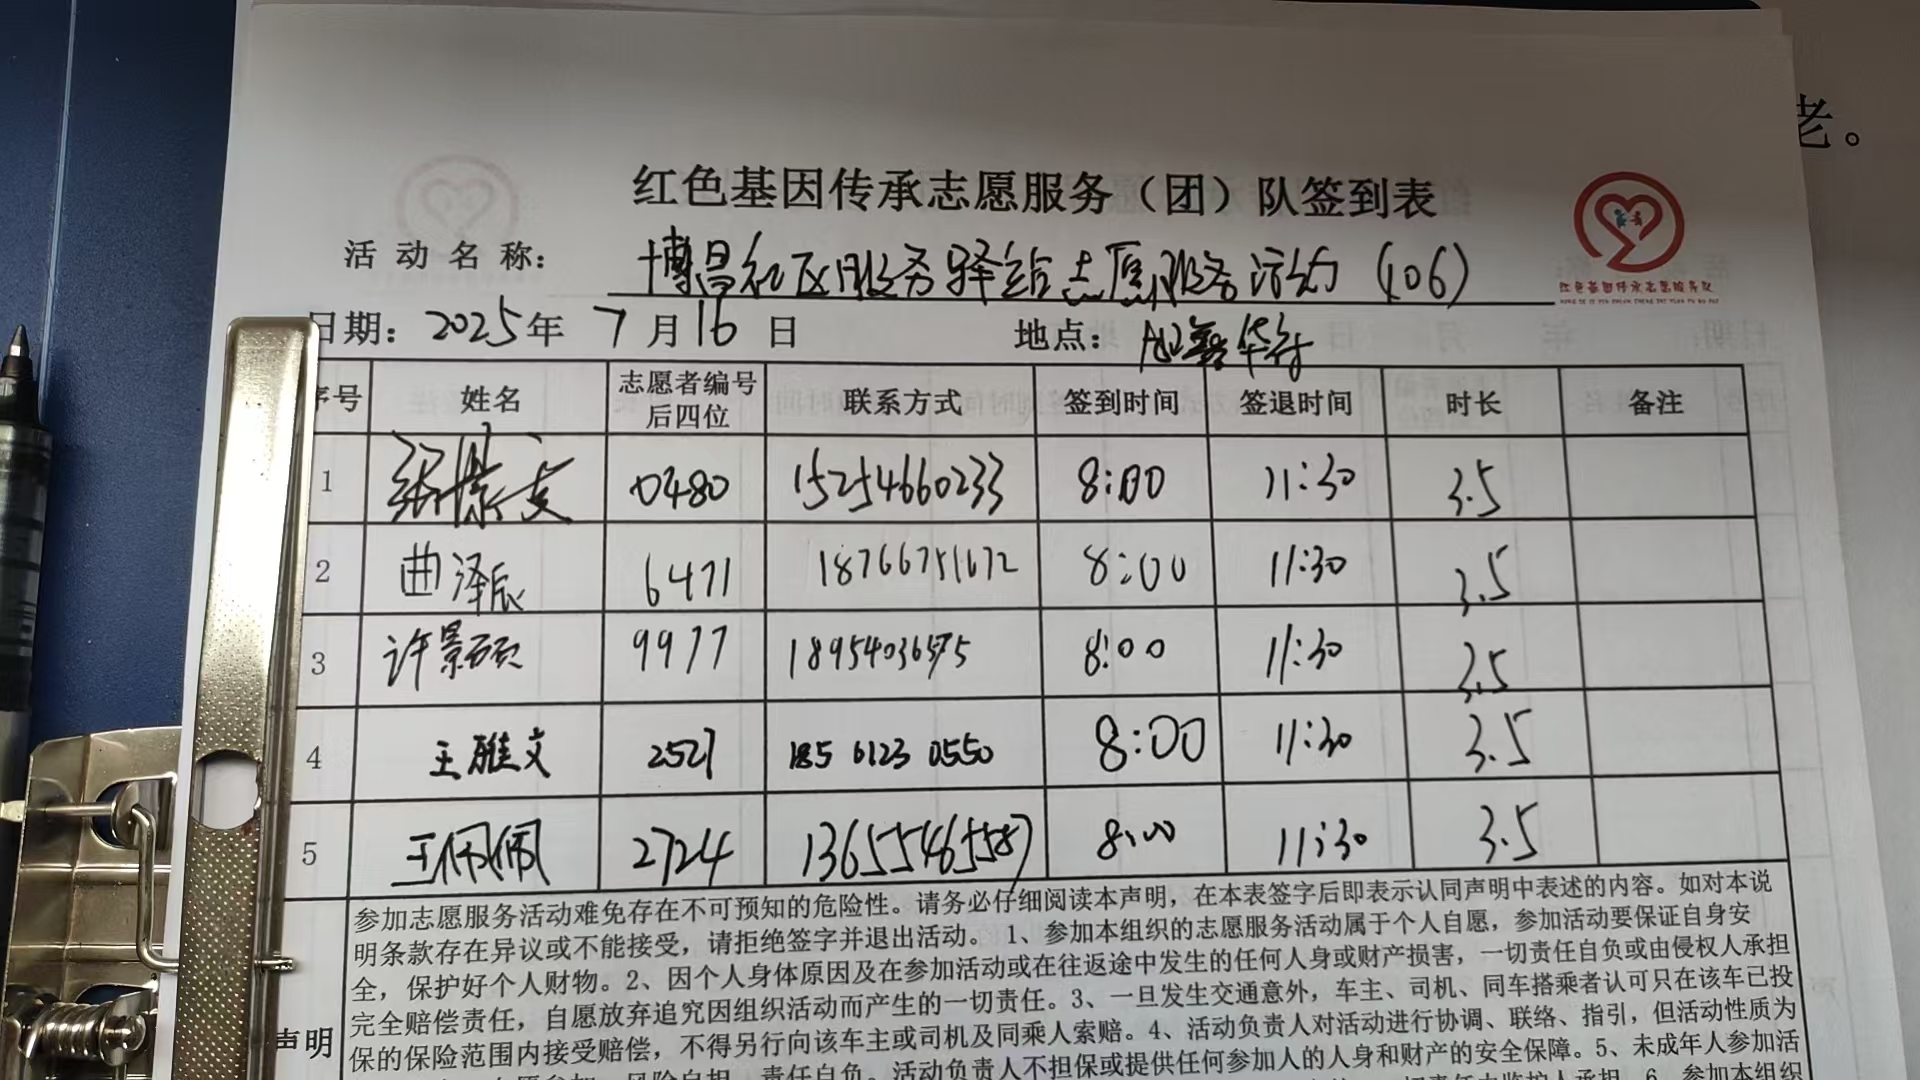 老。
红色基因传承志愿服务（团）队签到表
活动名称： 博昌社区服务驿站志愿服务活动（106）
红色基因传承志愿服务队
日期：2025年 7月16日 地点：
序号 姓名 志愿者编号后四位 联系方式 签到时间 签退时间 时长 备注
1 张景文 0480 15254660233 8:00 11:30 3.5
2 曲泽辰 6471 18766751672 8:00 11:30 3.5
3 许景硕 9977 18954036575 8:00 11:30 3.5
4 王雅文 2527 185 6123 0550 8:00 11:30 3.5
5 王佩佩 2724 13655465587 8:00 11:30 3.5
声明
参加志愿服务活动难免存在不可预知的危险性。请务必仔细阅读本声明，在本表签字后即表示认同声明中表述的内容。如对本说
明条款存在异议或不能接受，请拒绝签字并退出活动。 1、参加本组织的志愿服务活动属于个人自愿，参加活动要保证自身安
全，保护好个人财物。2、因个人身体原因及在参加活动或在往返途中发生的任何人身或财产损害，一切责任自负或由侵权人承担
完全赔偿责任，自愿放弃追究因组织活动而产生的一切责任。3、一旦发生交通意外，车主、司机、同车搭乘者认可只在该车已投
保的保险范围内接受赔偿，不得另行向该车主或司机及同乘人索赔。4、活动负责人对活动进行协调、联络、指引，但活动性质为
风险自担，责任自负。活动负责人不担保或提供任何参加人的人身和财产的安全保障。5、未成年人参加活
6、参加本组织